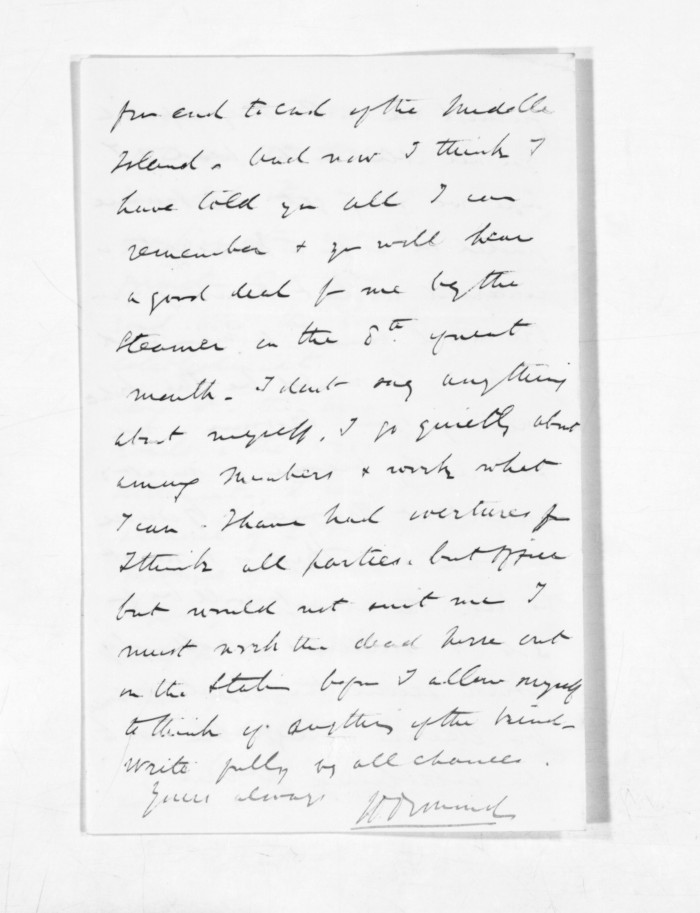 from end to end of the Middle
Island. And now I think I
have told you all I can
remember & you will hear
a good deal of me by the
Steamer on the 8th of next
month. I dont say anything
about myself. I go quietly about
among Members & work what
I can. I have had overtures from
I think all parties. but Office
but would not suit me I
must work the dead horse out
on the Station before I allow myself
to think of anything of the kind -
write fully by all chances.
Yours always JD Ormond